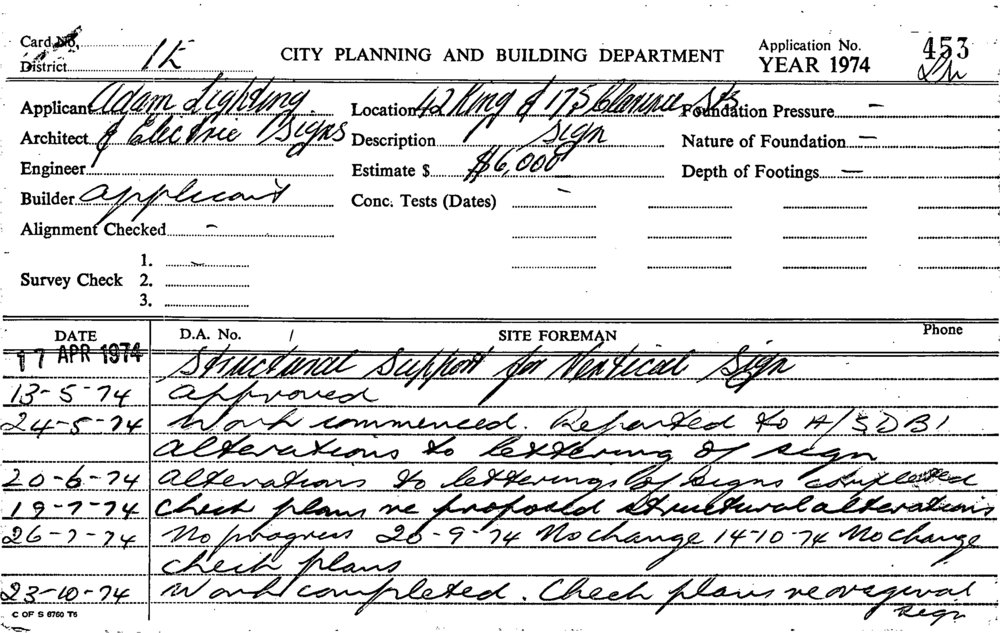 Card No.
District 1E
CITY PLANNING AND BUILDING DEPARTMENT
Application No. 453
YEAR 1974
Applicant Adam Lighting
Location 42 King & 175 Clarence Sts
Foundation Pressure –
Architect & Electric Signs
Description Sign
Nature of Foundation –
Engineer
Estimate $ $6,000
Depth of Footings –
Builder applicant
Conc. Tests (Dates) –
Alignment Checked –
1. –
Survey Check 2.
3.
DATE D.A. No. / SITE FOREMAN Phone
17 APR 1974 Structural Support for Vertical Sign
13-5-74 Approved
24-5-74 Work commenced. Reported to A/SDBI
alterations to lettering of sign
20-6-74 Alterations to letterings of signs completed
19-7-74 Check plans re proposed structural alterations
26-7-74 No progress 20-9-74 No change 14-10-74 No change
check plans
23-10-74 Work completed. Check plans re
sign
C OF S 6760 T6